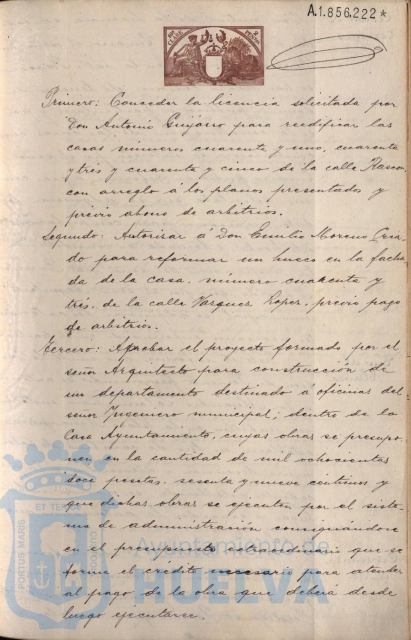 A.1.856.222*
Primero: Conceder la licencia solicitada por
Don Antonio Guijarro para reedificar las
casas números cuarenta y uno, cuarenta
y tres y cuarenta y cinco de la calle Rascon,
con arreglo á los planos presentados y
prévio abono de arbitrios.
Segundo: Autorizar á Don Emilio Moreno Cria-
do para reformar un hueco en la facha-
da de la casa número cuarenta y
tres de la calle Vazquez Lopez, previo pago
de arbitrios.
Tercero: Aprobar el proyecto formado por el
señor Arquitecto para construcción de
un departamento destinado á oficinas del
señor Ingeniero municipal, dentro de la
Casa Ayuntamiento, cuyas obras se presupo-
nen en la cantidad de mil ochocientas
doce pesetas, sesenta y nueve centimos y
que dichas obras se ejecuten por el siste-
ma de administración consignandose
en el presupuesto extraordinario que se
forme el crédito necesario para atender
al pago de la obra que deberá desde
luego ejecutarse.
PORTUS MARIS
ET TERRAE
Ayuntamiento de
HUELVA